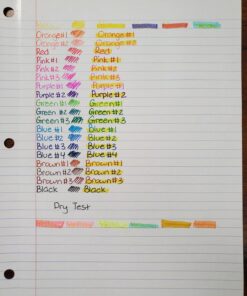 Orange#1 Orange #1
Orange #2 Orange #2
Red Red
Pink #1 Pink #1
Pink #2 Pink #2
Pink #3 Pink #3
Purple #1 Purple #1
Purple #2 Purple #2
Green #1 Green #1
Green #2 Green #2
Green #3 Green #3
Blue #1 Blue #1
Blue #2 Blue #2
Blue #3 Blue #3
Blue #4 Blue #4
Brown#1 Brown#1
Brown#2 Brown#2
Brown#3 Brown#3
Black Black
Dry Test